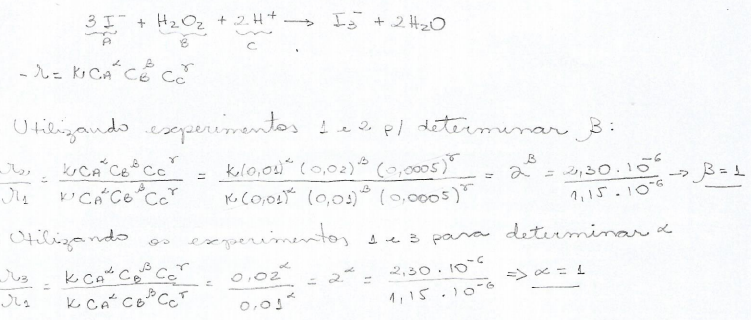 3 I⁻ + H₂O₂ + 2H⁺ → I₃⁻ + 2H₂O
A B C
-r = k CA^α CB^β CC^γ
Utilizando experimentos 1 e 2 p/ determinar β:
r₂/r₁ = k CA^α CB^β CC^γ / k CA^α CB^β CC^γ = k(0,01)^α (0,02)^β (0,0005)^γ / k(0,01)^α (0,01)^β (0,0005)^γ = 2^β = 2,30.10⁻⁶ / 1,15.10⁻⁶ → β = 1
Utilizando os experimentos 1 e 3 para determinar α
r₃/r₁ = k CA^α CB^β CC^γ / k CA^α CB^β CC^γ = 0,02^α / 0,01^α = 2^α = 2,30.10⁻⁶ / 1,15.10⁻⁶ ⇒ α = 1